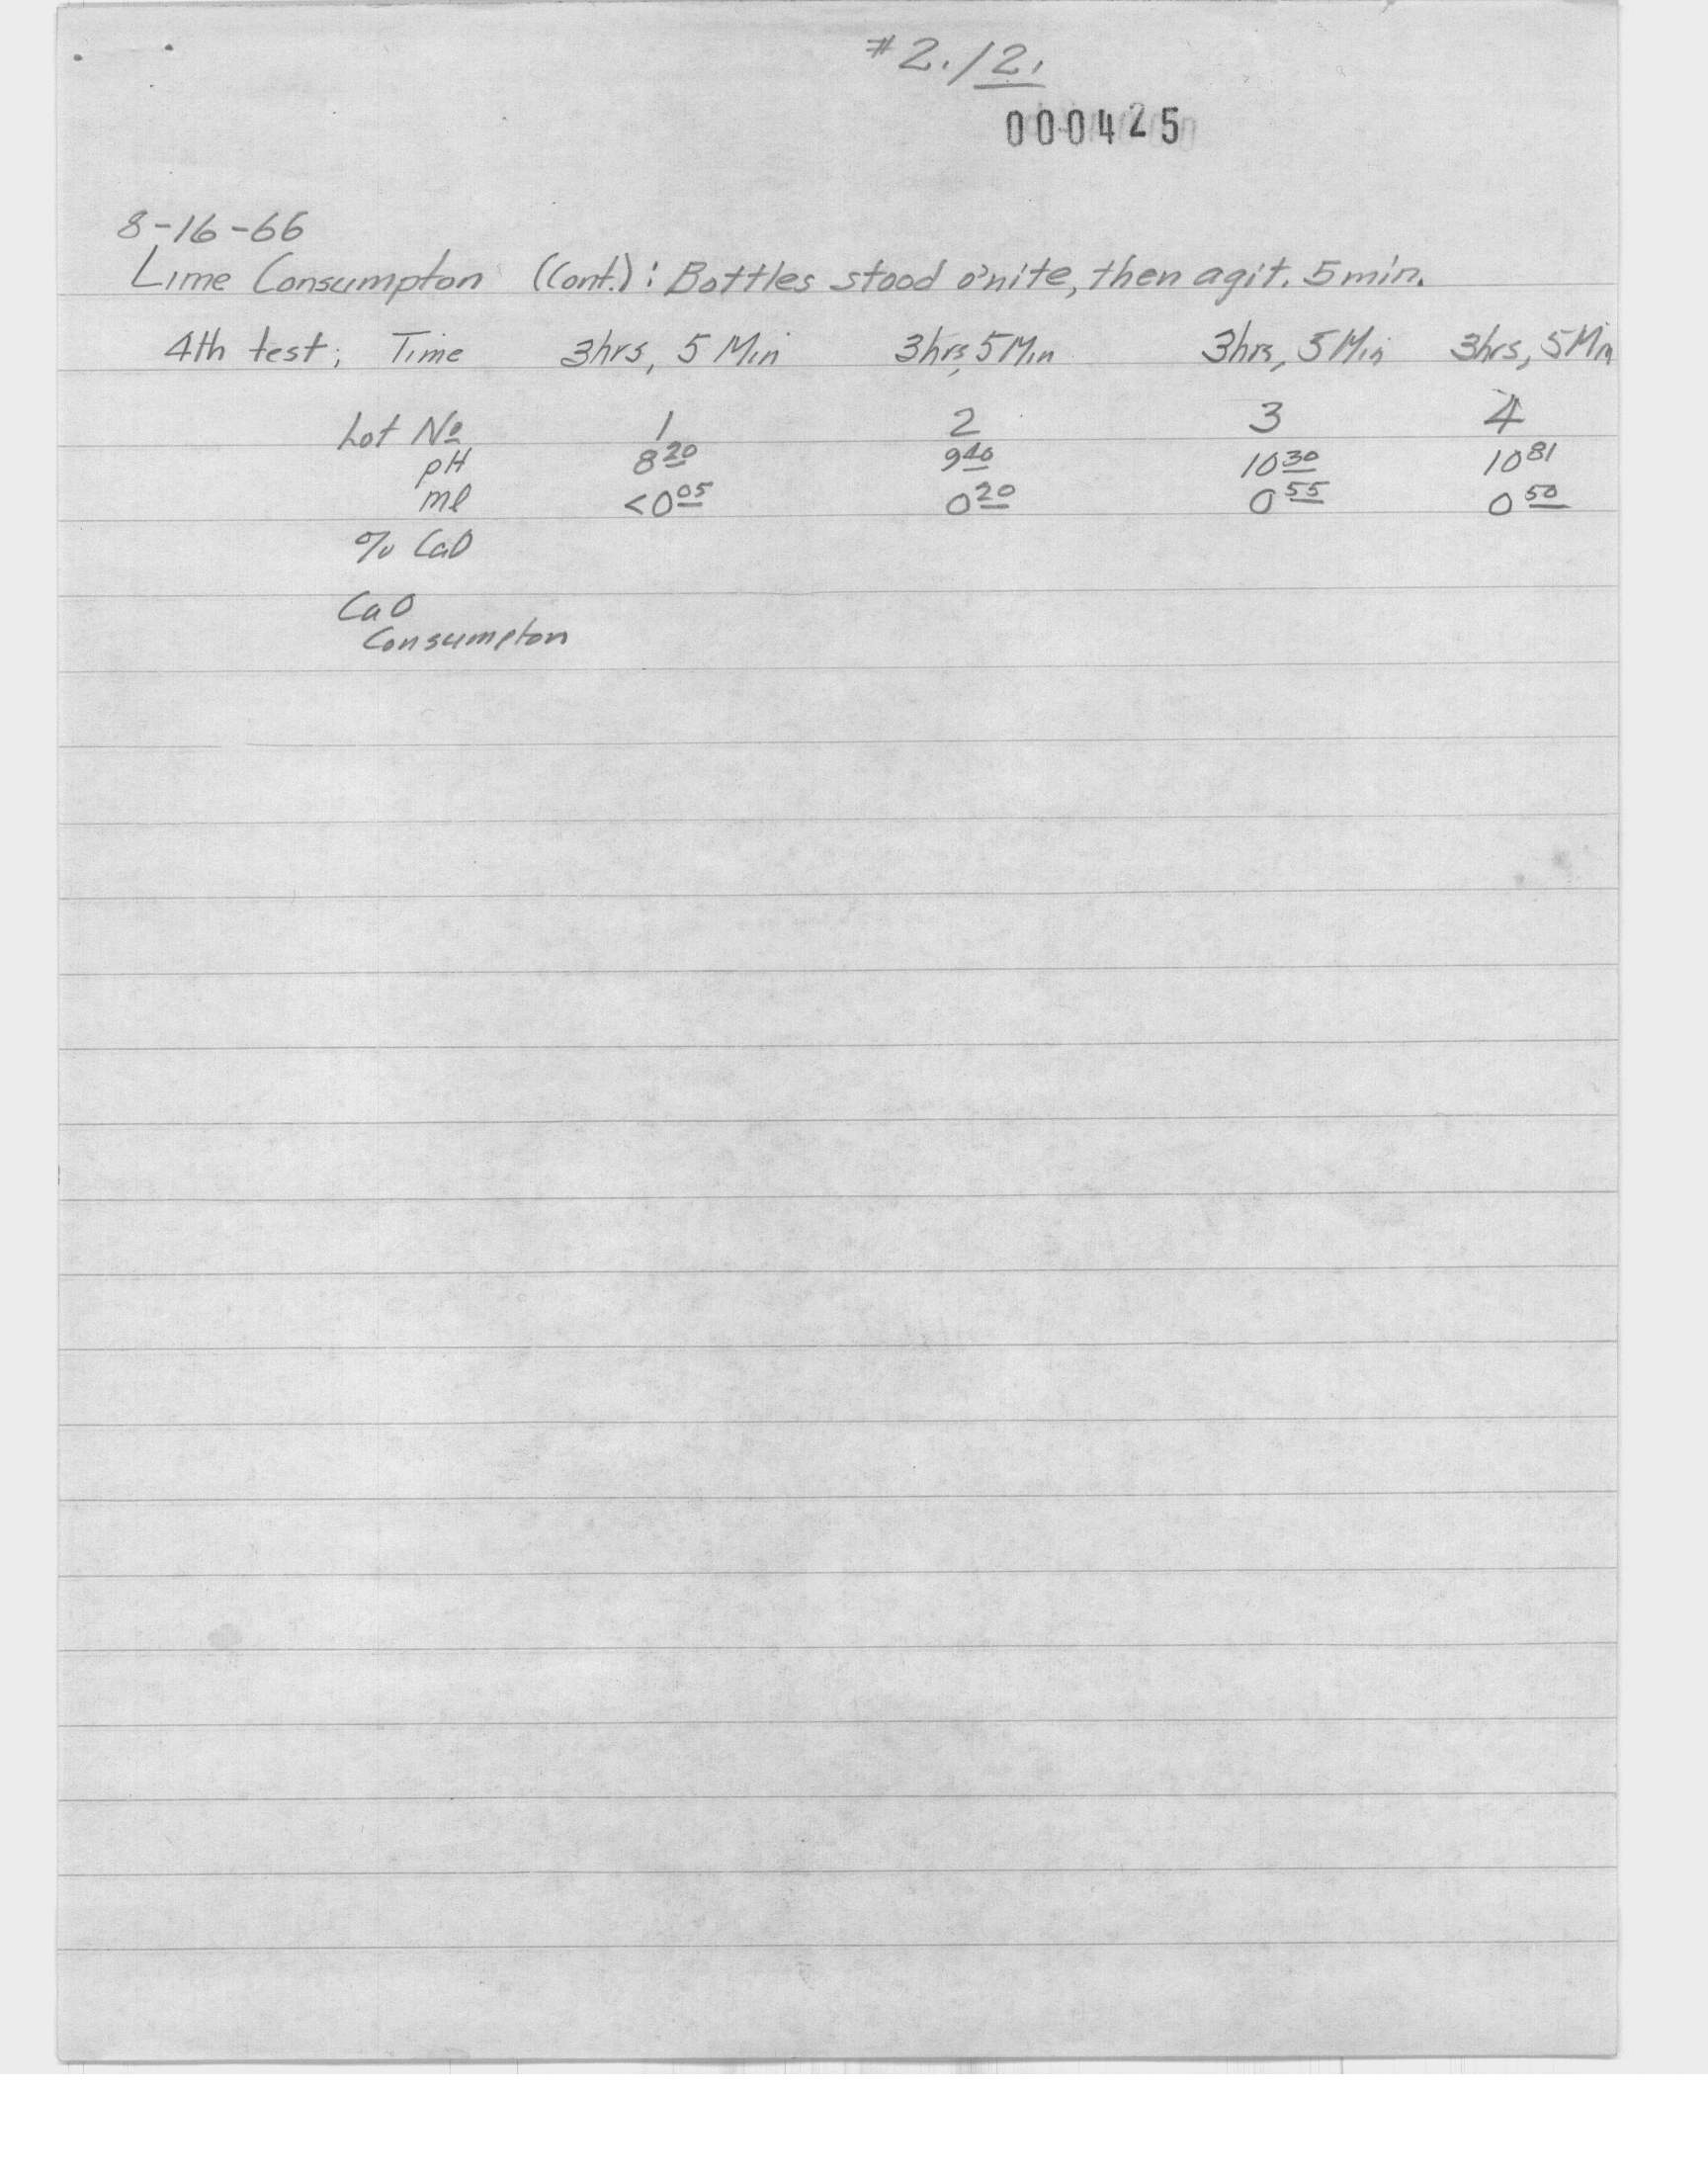 #2./2.
000425
8-16-66
Lime Consumpton (Cont.): Bottles stood o'nite, then agit. 5 min.
4th test; Time 3hrs, 5 Min 3hrs, 5 Min 3hrs, 5 Min 3hrs, 5 Min
Lot No 1 2 3 4
pH 8 20 9 40 10 30 10 81
ml <0 05 0 20 0 55 0 50
% CaO
CaO
Consumpton